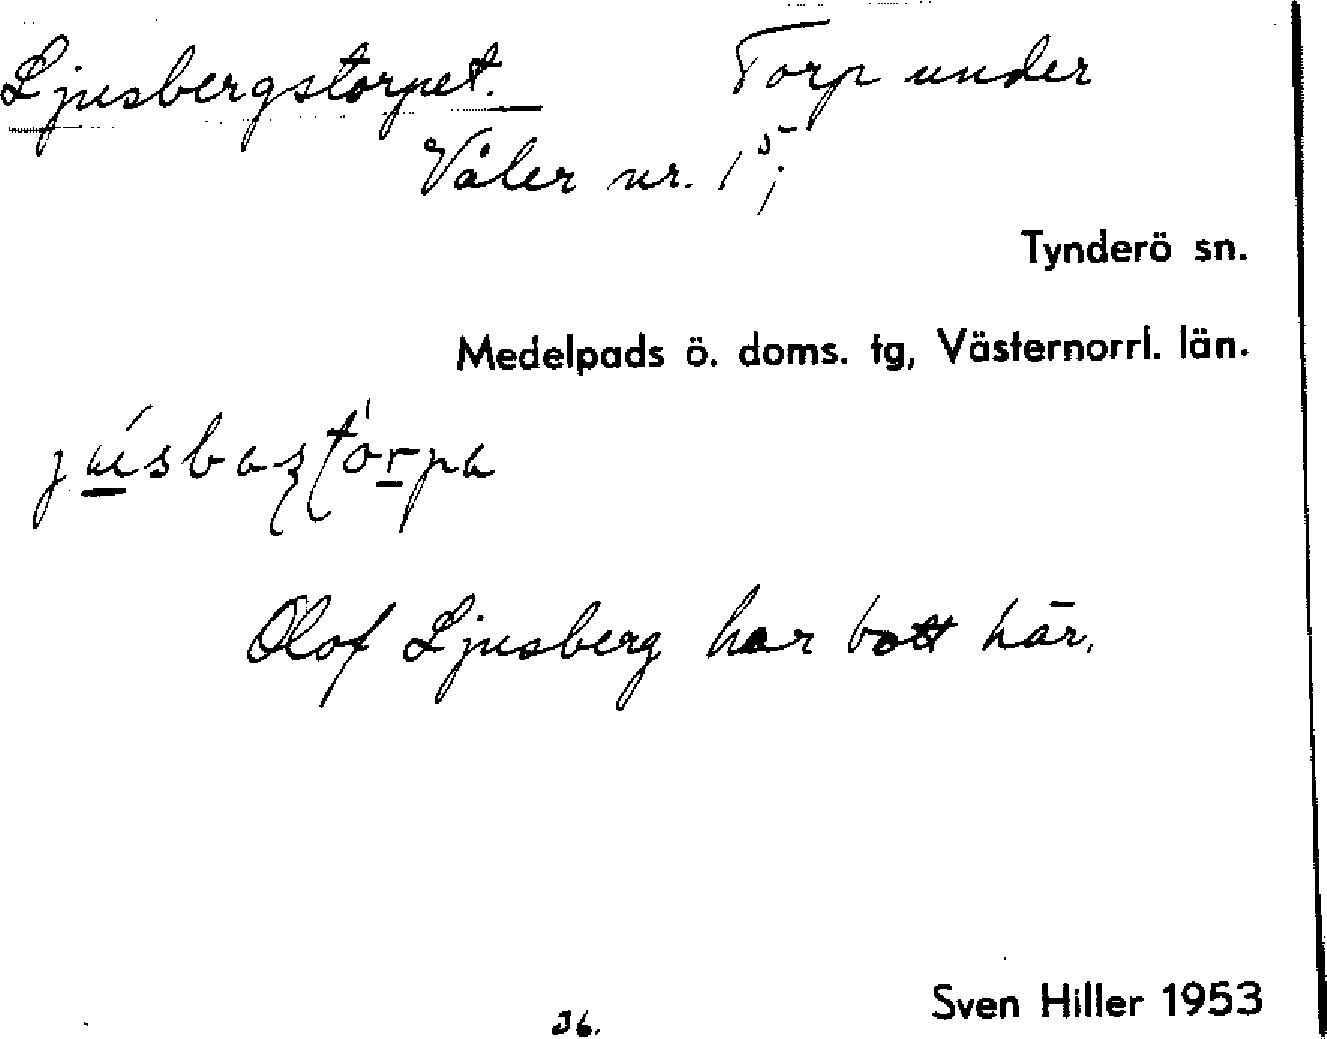 Ljusbergstorpet. Torp under
Våler nr. 1⁵;
Tynderö sn.
Medelpads ö. doms. tg, Västernorrl. län.
Olof Ljusberg har bott här.
Sven Hiller 1953
36.